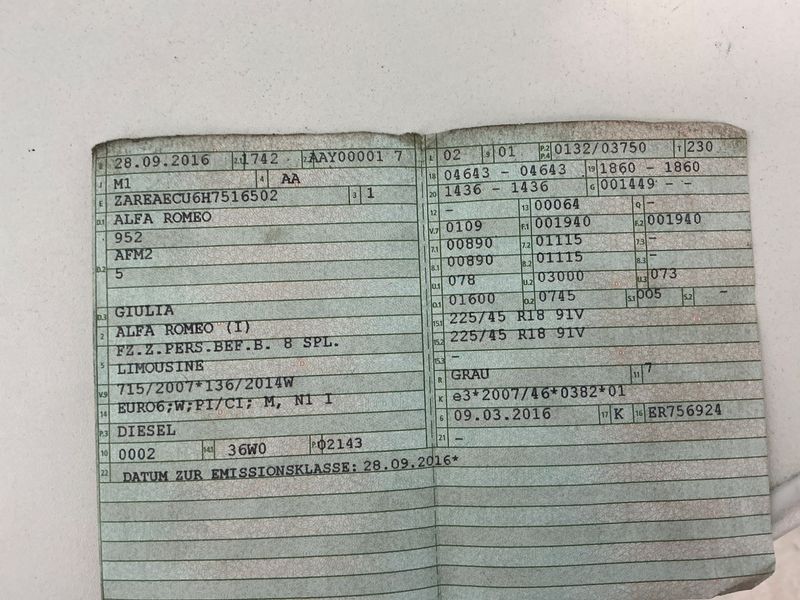 B 28.09.2016 2.1 1742 2.2 AAY00001 7
J M1 4 AA
E ZAREAECU6H7516502 3 1
D.1 ALFA ROMEO
952
D.2 AFM2
5
D.3 GIULIA
2 ALFA ROMEO (I)
FZ.Z.PERS.BEF.B. 8 SPL.
5 LIMOUSINE
V.9 715/2007*136/2014W
14 EURO6;W;PI/CI; M, N1 I
P.3 DIESEL
10 0002 14.1 36W0 P.1 02143
22 DATUM ZUR EMISSIONSKLASSE: 28.09.2016*
L 02 9 01 P.2 P.4 0132/03750 T 230
18 04643 - 04643 19 1860 - 1860
20 1436 - 1436 G 001449 - -
12 - 13 00064 Q -
V.7 0109 F.1 001940 F.2 001940
7.1 00890 7.2 01115 7.3 -
8.1 00890 8.2 01115 8.3 -
U.1 078 U.2 03000 U.3 073
O.1 01600 O.2 0745 S.1 005 S.2 -
15.1 225/45 R18 91V
15.2 225/45 R18 91V
15.3 -
R GRAU 11 7
K e3*2007/46*0382*01
6 09.03.2016 17 K 16 ER756924
21 -